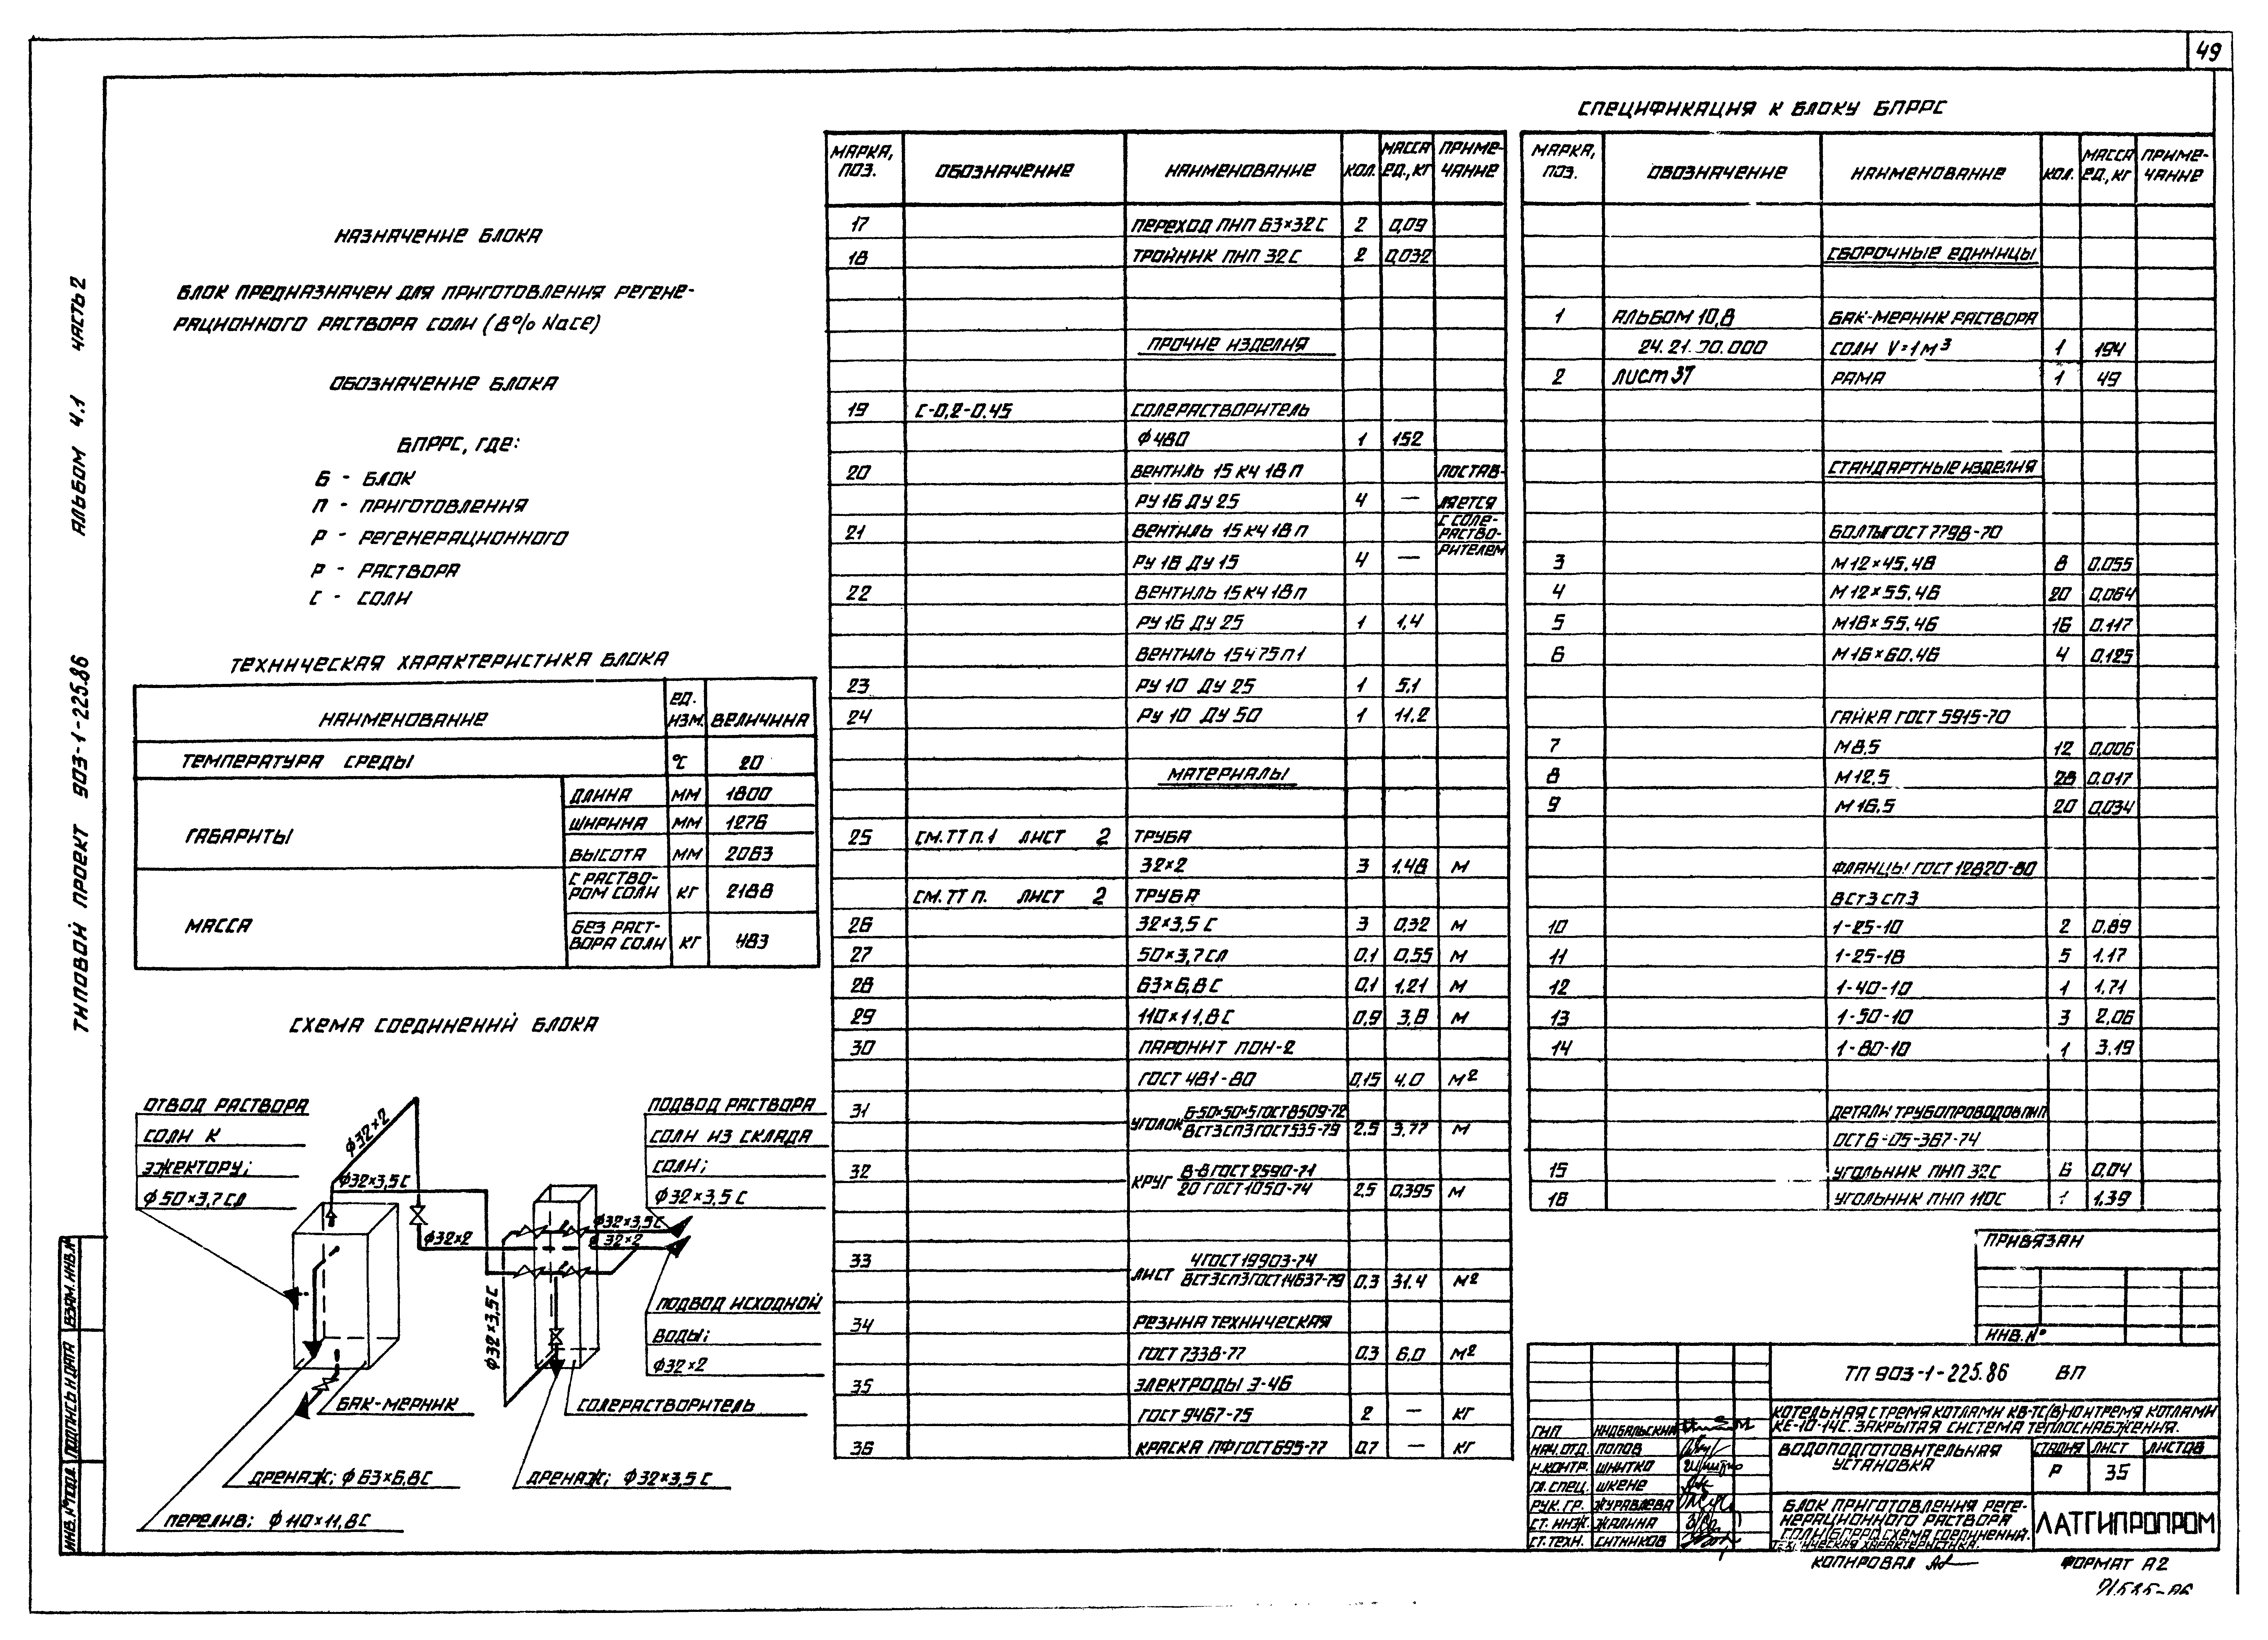 49
ТИПОВОЙ ПРОЕКТ 903-1-225.86 АЛЬБОМ 4.1 ЧАСТЬ 2
НАЗНАЧЕНИЕ БЛОКА
БЛОК ПРЕДНАЗНАЧЕН ДЛЯ ПРИГОТОВЛЕНИЯ РЕГЕНЕ-
РАЦИОННОГО РАСТВОРА СОЛИ (8% NaCe)
ОБОЗНАЧЕНИЕ БЛОКА
БПРРС, ГДЕ:
Б - БЛОК
П - ПРИГОТОВЛЕНИЯ
Р - РЕГЕНЕРАЦИОННОГО
Р - РАСТВОРА
С - СОЛИ
ТЕХНИЧЕСКАЯ ХАРАКТЕРИСТИКА БЛОКА
НАИМЕНОВАНИЕ ЕД. ИЗМ. ВЕЛИЧИНА
ТЕМПЕРАТУРА СРЕДЫ °С 20
ГАБАРИТЫ ДЛИНА ММ 1800
ШИРИНА ММ 1276
ВЫСОТА ММ 2063
МАССА С РАСТВО-
РОМ СОЛИ КГ 2188
БЕЗ РАСТ-
ВОРА СОЛИ КГ 483
СХЕМА СОЕДИНЕНИЙ БЛОКА
ОТВОД РАСТВОРА
СОЛИ К
ЭЖЕКТОРУ;
Ф50×3,7 СЛ
Ф32×2
Ф32×3,5 С
Ф32×2
Ф32×3,5 С
Ф32×3,5 С
Ф 32×2
ПОДВОД РАСТВОРА
СОЛИ ИЗ СКЛАДА
СОЛИ;
Ф32×3,5 С
ПОДВОД ИСХОДНОЙ
ВОДЫ;
Ф32×2
БАК-МЕРНИК
СОЛЕРАСТВОРИТЕЛЬ
ДРЕНАЖ; Ф63×6,8С
ДРЕНАЖ; Ф32×3,5 С
ПЕРЕЛИВ; Ф110×11,8С
МАРКА, ПОЗ. ОБОЗНАЧЕНИЕ НАИМЕНОВАНИЕ КОЛ. МАССА ЕД., КГ ПРИМЕ-ЧАНИЕ
17 ПЕРЕХОД ПНП 63×32С 2 0,09
18 ТРОЙНИК ПНП 32С 2 0,032
ПРОЧИЕ ИЗДЕЛИЯ
19 С-0,2-0.45 СОЛЕРАСТВОРИТЕЛЬ
Ф480 1 152
20 ВЕНТИЛЬ 15 КЧ 18 П ПОСТАВ-
РУ 16 ДУ 25 4 — ЛЯЕТСЯ
21 ВЕНТИЛЬ 15 КЧ 18 П С СОЛЕ-
РАСТВО-
РУ 16 ДУ 15 4 — РИТЕЛЕМ
22 ВЕНТИЛЬ 15 КЧ 18 П
РУ 16 ДУ 25 1 1,4
ВЕНТИЛЬ 15Ч 75 П1
23 РУ 10 ДУ 25 1 5,1
24 РУ 10 ДУ 50 1 11,2
МАТЕРИАЛЫ
25 СМ. ТТ П.1 ЛИСТ 2 ТРУБА
32×2 3 1.48 М
СМ. ТТ П. ЛИСТ 2 ТРУБА
26 32×3,5 С 3 0,32 М
27 50×3,7 СЛ 0,1 0,55 М
28 63×6,8 С 0,1 1,21 М
29 110×11,8 С 0,9 3,8 М
30 ПАРОНИТ ПОН-2
ГОСТ 481-80 0,15 4.0 М²
31 УГОЛОК Б-50×50×5 ГОСТ 8509-72
ВСТ3 СП3 ГОСТ 535-79 2.5 3,77 М
32 КРУГ В-8 ГОСТ 2590-71
20 ГОСТ 1050-74 2,5 0,395 М
33 ЛИСТ 4 ГОСТ 19903-74
ВСТ3 СП3 ГОСТ 14637-79 0,3 31.4 М²
34 РЕЗИНА ТЕХНИЧЕСКАЯ
ГОСТ 7338-77 0.3 6,0 М²
35 ЭЛЕКТРОДЫ Э-46
ГОСТ 9467-75 2 — КГ
36 КРАСКА ПФ ГОСТ 695-77 0,7 — КГ
СПЕЦИФИКАЦИЯ К БЛОКУ БПРРС
МАРКА, ПОЗ. ОБОЗНАЧЕНИЕ НАИМЕНОВАНИЕ КОЛ. МАССА ЕД., КГ ПРИМЕ-ЧАНИЕ
СБОРОЧНЫЕ ЕДИНИЦЫ
1 АЛЬБОМ 10,8 БАК-МЕРНИК РАСТВОРА
24.21.70.000 СОЛИ V=1М³ 1 194
2 ЛИСТ 37 РАМА 1 49
СТАНДАРТНЫЕ ИЗДЕЛИЯ
БОЛТЫ ГОСТ 7798-70
3 М12×45.48 8 0.055
4 М12×55.46 20 0,064
5 М16×55.46 16 0.117
6 М16×60.46 4 0.125
ГАЙКА ГОСТ 5915-70
7 М8.5 12 0,006
8 М12.5 28 0.017
9 М16.5 20 0,034
ФЛАНЦЫ ГОСТ 12820-80
ВСТ3 СП3
10 1-25-10 2 0,89
11 1-25-16 5 1.17
12 1-40-10 1 1,71
13 1-50-10 3 2,06
14 1-80-10 1 3.19
ДЕТАЛИ ТРУБОПРОВОДОВ ПНП
ОСТ 6-05-367-74
15 УГОЛЬНИК ПНП 32С 6 0,04
16 УГОЛЬНИК ПНП 110С 1 1,39
ПРИВЯЗАН
ИНВ. №
ТП 903-1-225.86 ВП
КОТЕЛЬНАЯ С ТРЕМЯ КОТЛАМИ КВ-ТС(В)-10 И ТРЕМЯ КОТЛАМИ
КЕ-10-14С. ЗАКРЫТАЯ СИСТЕМА ТЕПЛОСНАБЖЕНИЯ.
ГИП
НАЧ. ОТД. ПОПОВ
Н.КОНТР. ШНИТКО
ГЛ. СПЕЦ. ШКЕНЕ
РУК. ГР. ЖУРАВЛЕВА
СТ. ИНЖ. ЖАЛИНА
СТ. ТЕХН. СИТНИКОВ
ВОДОПОДГОТОВИТЕЛЬНАЯ
УСТАНОВКА
СТАДИЯ ЛИСТ ЛИСТОВ
Р 35
БЛОК ПРИГОТОВЛЕНИЯ РЕГЕ-
НЕРАЦИОННОГО РАСТВОРА
СОЛИ (БПРРС) СХЕМА СОЕДИНЕНИЙ.
ТЕХНИЧЕСКАЯ ХАРАКТЕРИСТИКА.
ЛАТГИПРОПРОМ
КОПИРОВАЛ ФОРМАТ А2
ИНВ. № ПОДЛ. ПОДПИСЬ И ДАТА ВЗАМ. ИНВ. №